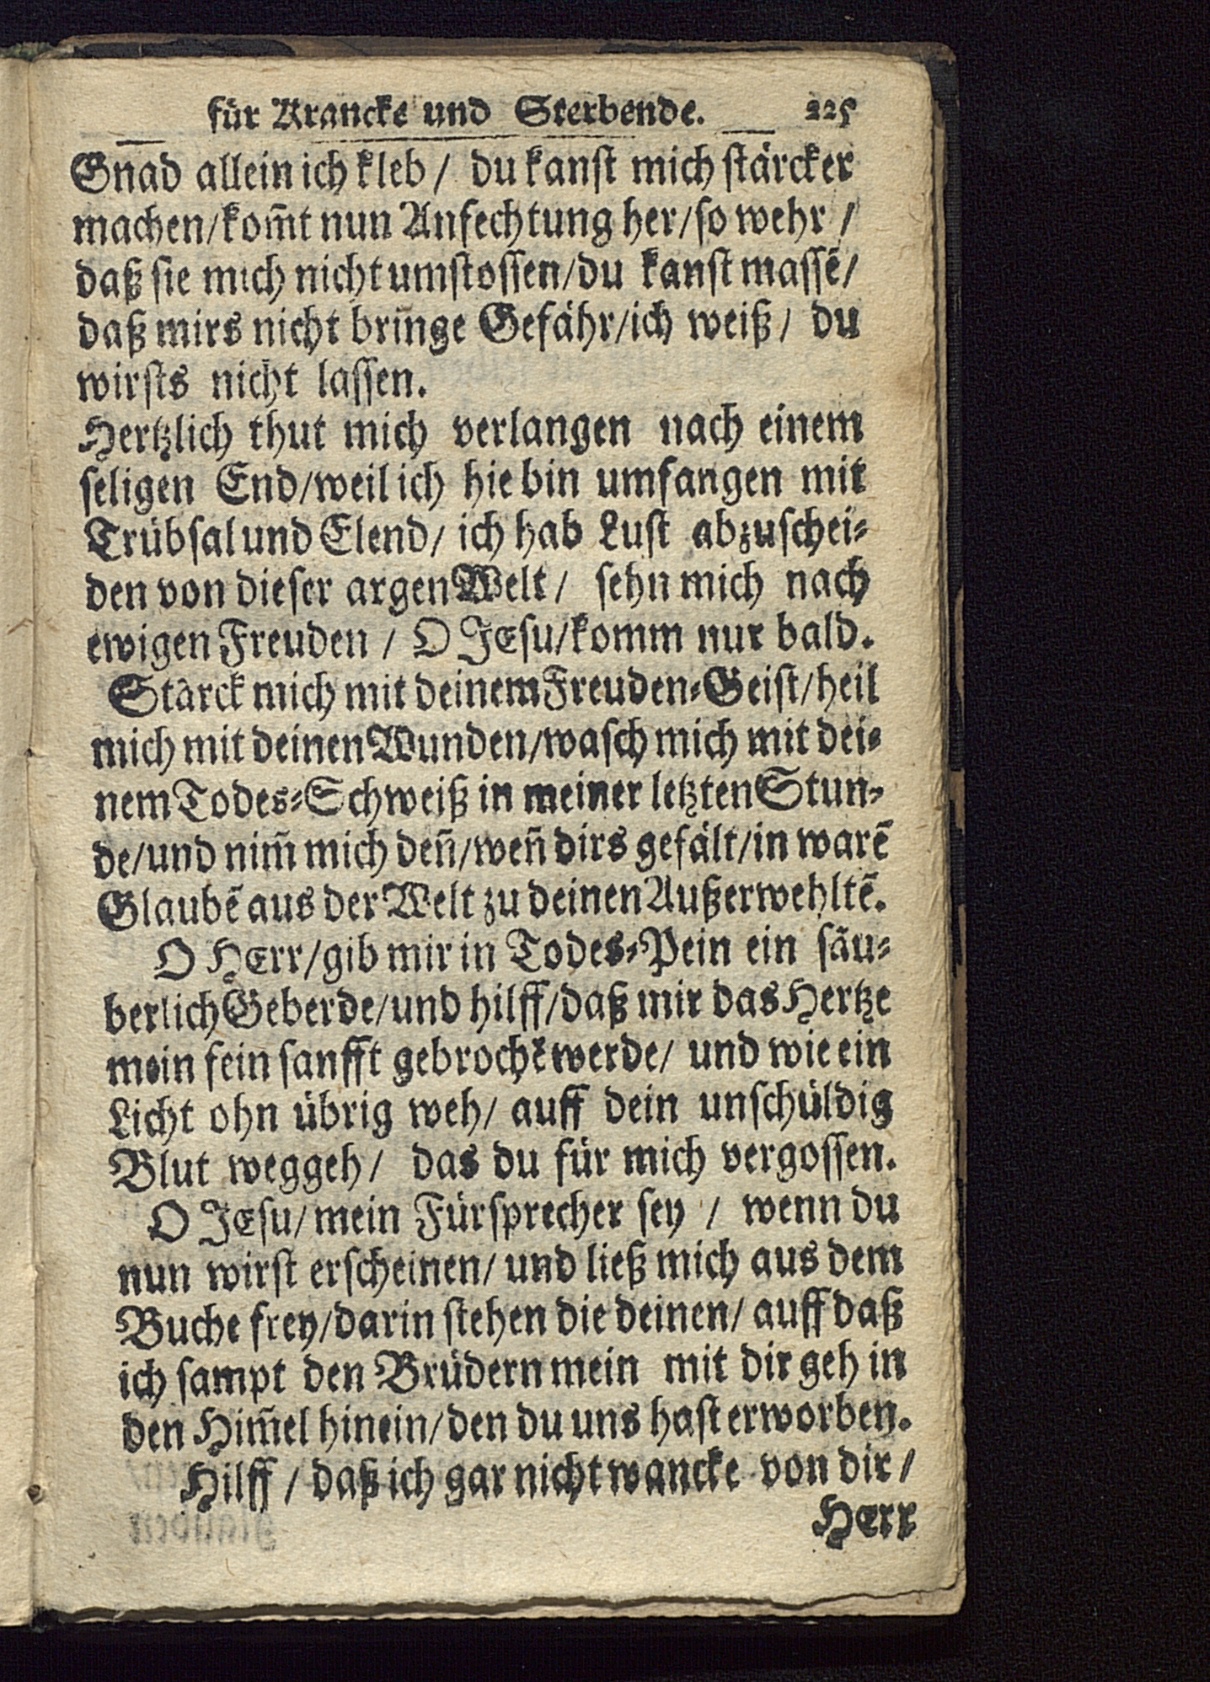 für Krancke und Sterbende. 225
Gnad allein ich kleb / du kanst mich stärcker
machen/kom̃t nun Anfechtung her/so wehr /
daß sie mich nicht umstossen/du kanst massẽ/
daß mirs nicht bringe Gefähr/ich weiß / du
wirsts nicht lassen.
Hertzlich thut mich verlangen nach einem
seligen End/weil ich hie bin umfangen mit
Trübsal und Elend/ ich hab Lust abzuschei-
den von dieser argen Welt / sehn mich nach
ewigen Freuden / O JEsu/komm nur bald.
Stärck mich mit deinem Freuden-Geist/heil
mich mit deinen Wunden/wasch mich mit dei-
nem Todes-Schweiß in meiner letzten Stun-
de/und nim̃ mich deñ/weñ dirs gefält/in warẽ
Glaubẽ aus der Welt zu deinen Außerwehltẽ.
O HErr/gib mir in Todes-Pein ein säu-
berlich Geberde/und hilff/daß mir das Hertze
mein fein sanfft gebrochẽ werde/ und wie ein
Licht ohn übrig weh/ auff dein unschüldig
Blut weggeh/ das du für mich vergossen.
O JEsu/mein Fürsprecher sey / wenn du
nun wirst erscheinen/ und ließ mich aus dem
Buche frey/darin stehen die deinen/ auff daß
ich sampt den Brüdern mein mit dir geh in
den Him̃el hinein/den du uns hast erworben.
Hilff / daß ich gar nicht wancke von dir /
HErr